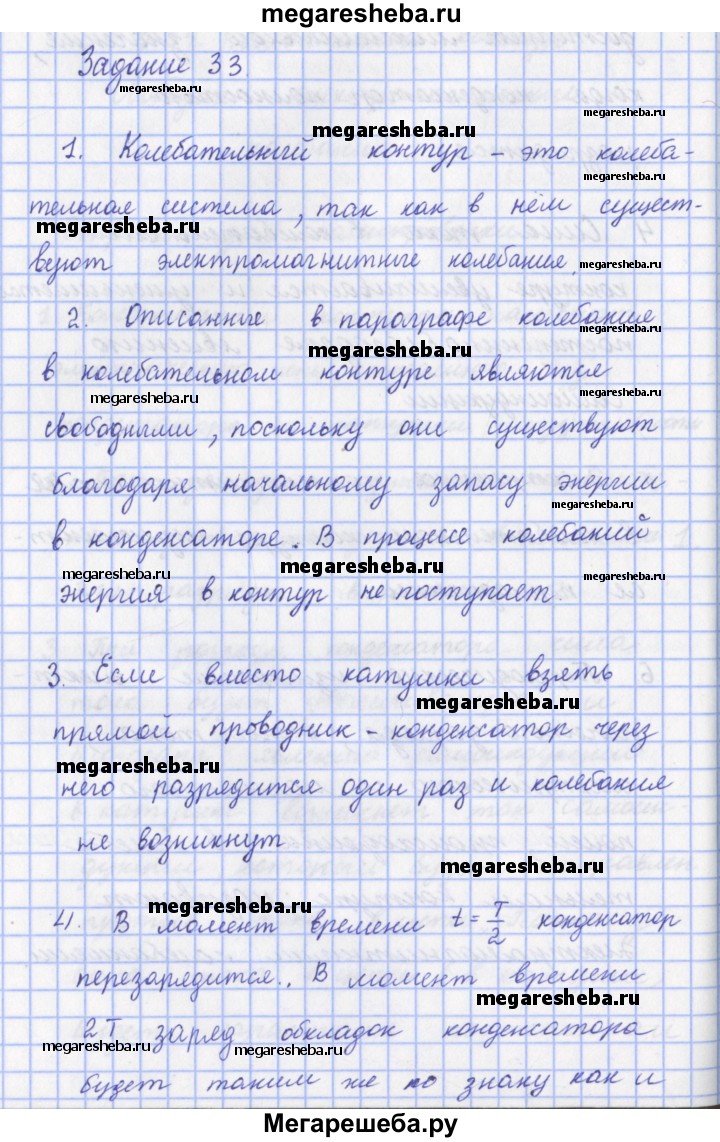 megaresheba.ru
Задание 33
megaresheba.ru
megaresheba.ru
megaresheba.ru
1. Колебательный контур – это колеба-
megaresheba.ru
тельная система, так как в нём сущест-
megaresheba.ru
вуют электромагнитные колебания.
megaresheba.ru
2. Описанные в параграфе колебания
megaresheba.ru
в колебательном контуре являются
megaresheba.ru
свободными, поскольку они существуют
благодаря начальному запасу энергии
megaresheba.ru
в конденсаторе. В процессе колебаний
megaresheba.ru
megaresheba.ru
megaresheba.ru
энергия в контур не поступает.
3. Если вместо катушки взять
megaresheba.ru
прямой проводник – конденсатор через
megaresheba.ru
него разрядится один раз и колебания
не возникнут
megaresheba.ru
megaresheba.ru
4. В момент времени t = T/2 конденсатор
перезарядится. В момент времени
megaresheba.ru
2T заряд обкладок конденсатора
megaresheba.ru
megaresheba.ru
будет таким же по знаку как и
Мегарешеба.ру